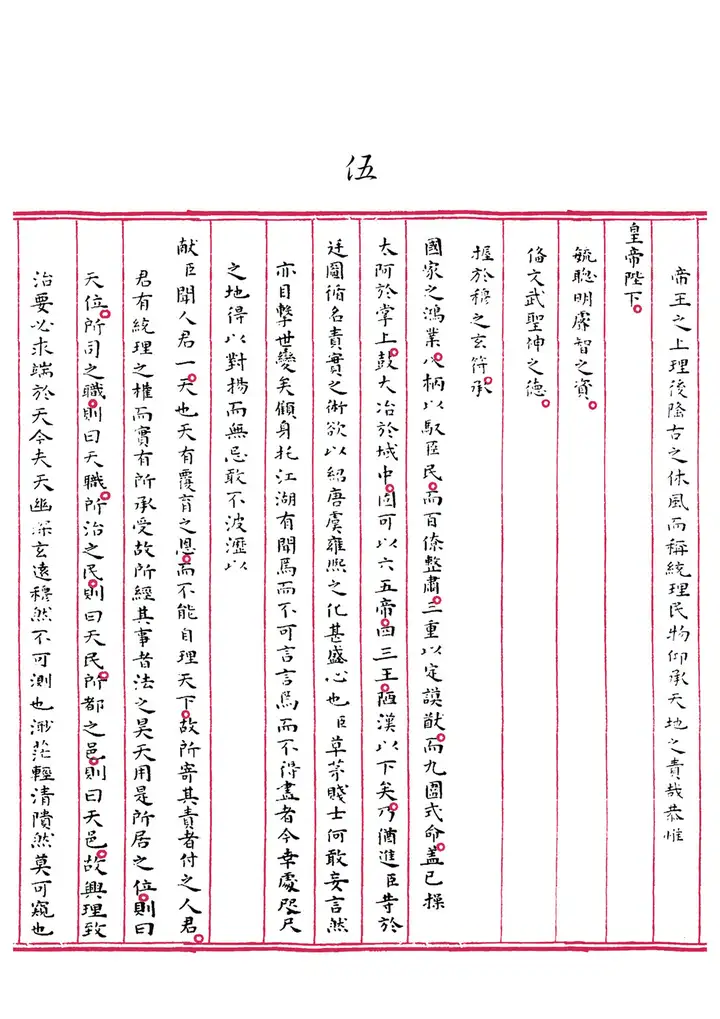 伍
帝王之上理後隆古之休風而稱統理民物仰承天地之責哉恭惟
皇帝陛下
毓聰明睿智之資
俻文武聖神之德
握於穆之玄符承
國家之鴻業八柄以馭臣民而百僚整肅三重以定謨猷而九圍式命蓋已操
太阿於掌上鼓大冶於域中固可以六五帝四三王陋漢以下矣乃猶進臣等於
廷圖循名責實之術欲以紹唐虞雍熙之化甚盛心也臣草茅賤士何敢妄言然
亦目擊世變矣顧身托江湖有聞焉而不可言言焉而不得盡者今幸處咫尺
之地得以對揚而無忌敢不披瀝以
献臣聞人君一天也天有覆育之恩而不能自理天下故所寄其責者付之人君
君有統理之權而實有所承受故所經其事者法之昊天用是所居之位則曰
天位所司之職則曰天職所治之民則曰天民所都之邑則曰天邑故興理致
治要必求端於天今夫天幽深玄遠穆然不可測也渺茫輕清隤然莫可窺也